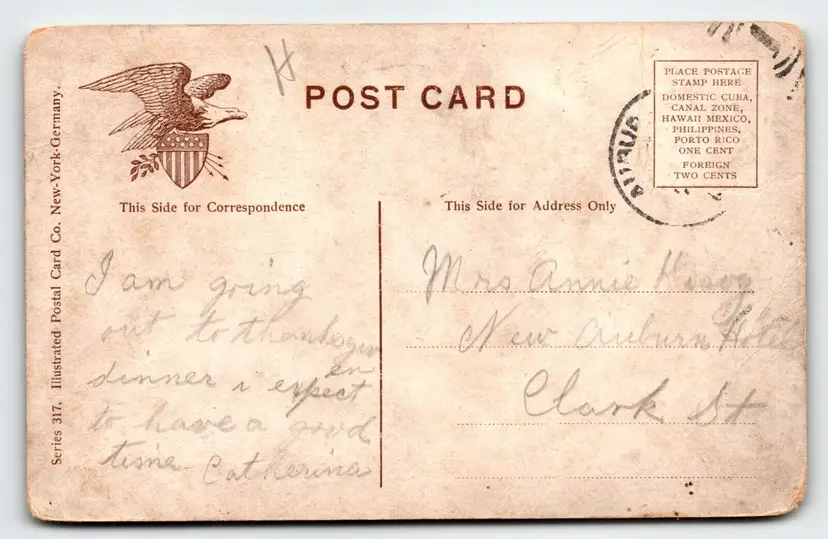 POST CARD
PLACE POSTAGE
STAMP HERE
DOMESTIC CUBA,
CANAL ZONE,
HAWAII MEXICO,
PHILIPPINES,
PORTO RICO
ONE CENT
FOREIGN
TWO CENTS
This Side for Correspondence
This Side for Address Only
Series 317. Illustrated Postal Card Co. New-York-Germany.
I am going
out to thanksgiv
en
dinner i expect
to have a good
time. Catherina
Mrs Annie
New Auburn Hotel
Clark St
AUBUR